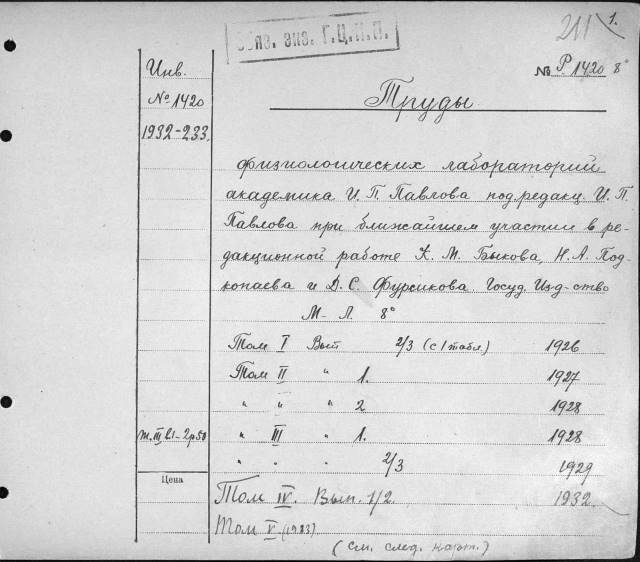 211 1.
Обяз. экз. Г.Ц.К.П.
Инв.
№ 1420
1932-233.
№ Р.1420 8°
Труды
физиологических лабораторий
академика И. П. Павлова под редакц. И. П.
Павлова при ближайшем участии в ре-
дакционной работе К. М. Быкова, Н. А. Под-
копаева и Д. С. Фурсикова Госуд. Изд-ство
М-Л. 8°
Том I Вып 2/3 (с 1 табл) 1926
Том II " 1. 1927
" " " 2 1928
т. III в.1 - 2р50
" III " 1. 1928
" " " 2/3 1929
Цена
Том IV. Вып. 1/2. 1932.
Том V. (1933)
(см. след. карт.)